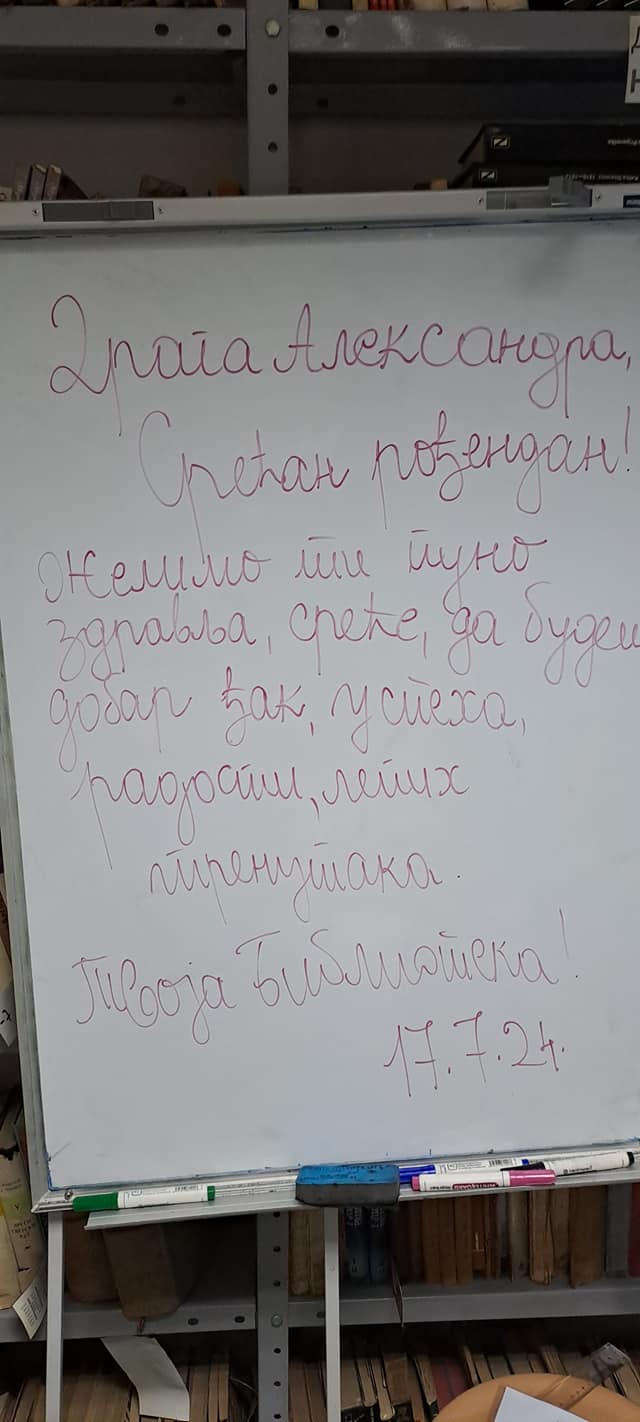 Драга Александра,
Срећан рођендан!
Желимо ти пуно
здравља, среће, да будеш
добар ђак, успеха,
радости, лепих
тренутака.
Твоја Библиотека!
17.7.24.